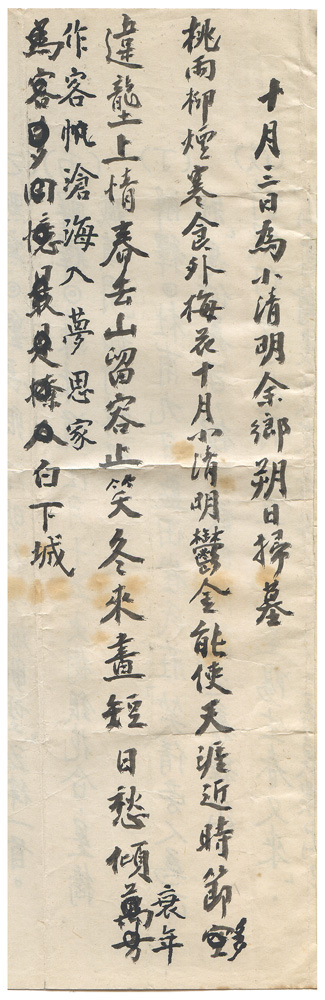 十月三日為小清明余鄉朔日掃墓
桃雨柳煙寒食外梅花十月小清明鬱金能使天涯近時節多
違壟上情春去山留容止笑冬來晝短日愁傾萬方
衰年
作客帆滄海入夢思家
為客多回憶最是撩人白下城